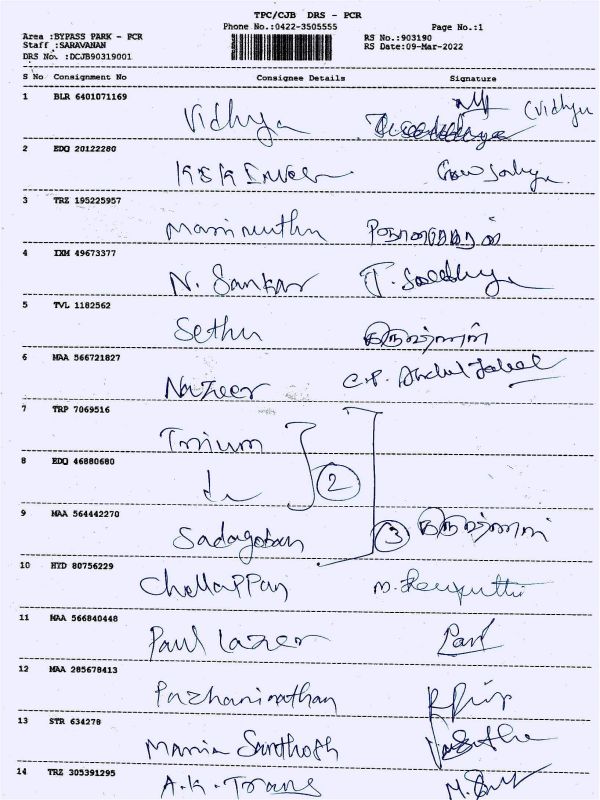 TPC/CJB DRS - PCR
Phone No.:0422-3505555 Page No.:1
Area :BYPASS PARK - PCR RS No.:903190
Staff :SARAVANAN RS Date:09-Mar-2022
DRS No. :DCJB90319001
S No Consignment No Consignee Details Signature
1 BLR 6401071169
Vidhya (Vidhya
2 EDQ 20122280
3 TRZ 195225957
Manimuthu
4 IXM 49673377
N. Sankar
5 TVL 1182562
Sethu
6 MAA 566721827
Nazeer C.P. Abdul Jaleel
7 TRP 7069516
8 EDQ 46880680
2
9 MAA 564442270
Sadagoban 3
10 HYD 80756229
Chellappan
11 MAA 566840448
Paul Lazer Paul
12 MAA 285678413
Pazhaninathan
13 STR 634278
Maria Santhosh
14 TRZ 305391295
A.K. Trans